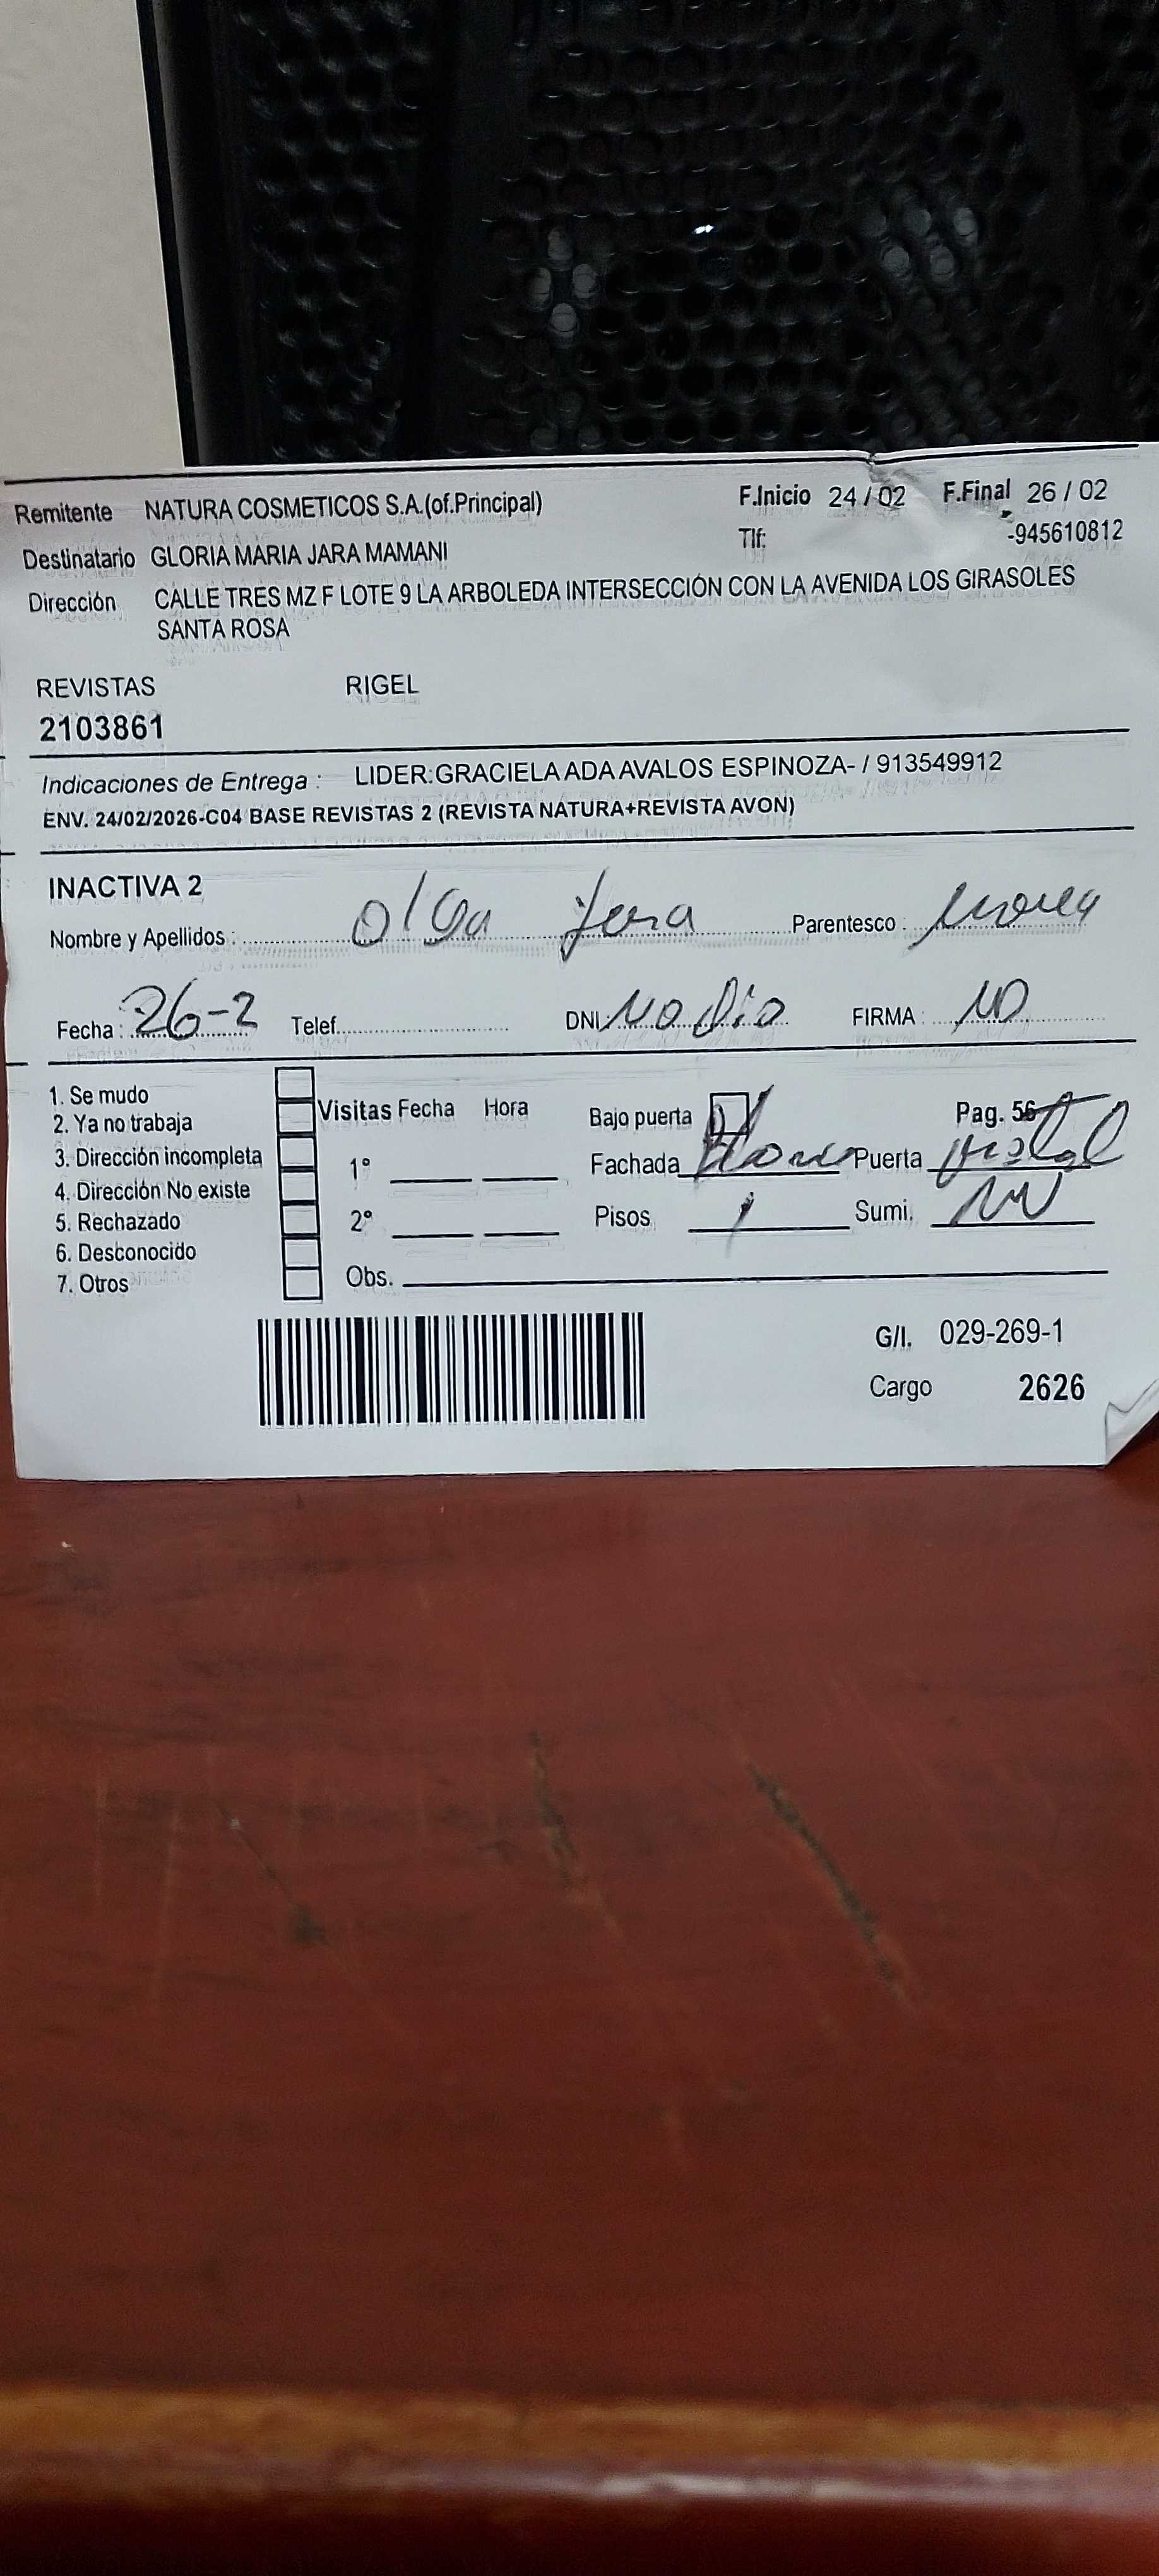 Remitente NATURA COSMETICOS S.A.(of.Principal) F.Inicio 24 / 02 F.Final 26 / 02
Destinatario GLORIA MARIA JARA MAMANI Tlf: -945610812
Dirección CALLE TRES MZ F LOTE 9 LA ARBOLEDA INTERSECCIÓN CON LA AVENIDA LOS GIRASOLES
SANTA ROSA
REVISTAS RIGEL
2103861
Indicaciones de Entrega : LIDER:GRACIELA ADA AVALOS ESPINOZA- / 913549912
ENV. 24/02/2026-C04 BASE REVISTAS 2 (REVISTA NATURA+REVISTA AVON)
INACTIVA 2
Nombre y Apellidos : Olga Jara Parentesco :
Fecha : 26-2 Telef. DNI No Dio FIRMA : ND
1. Se mudo
2. Ya no trabaja Visitas Fecha Hora Bajo puerta Pag. 56
3. Dirección incompleta 1º Fachada Puerta
4. Dirección No existe
5. Rechazado 2º Pisos 1 Sumi.
6. Desconocido
7. Otros Obs.
G/I. 029-269-1
Cargo 2626